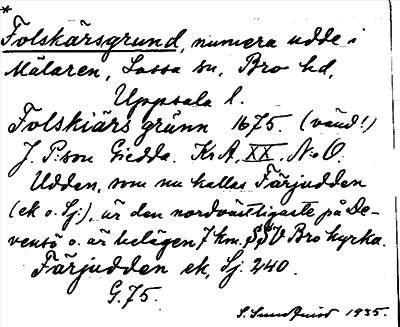 *
Folskärsgrund, numera udde i
Mälaren, Låssa sn, Bro hd,
Uppsala l.
Folskiärs grünn 1675. (vänd!)
J. P:son Giedda. Kr.A. XX. N:o O.
Udden, som nu kallas Färjudden
(ek o. Sj:), är den nordvästligaste på De-
vensö o. är belägen 7 km. SSV Bro kyrka.
Färjudden ek, Sj. 240.
G. 75.
S. Sundquist 1935.